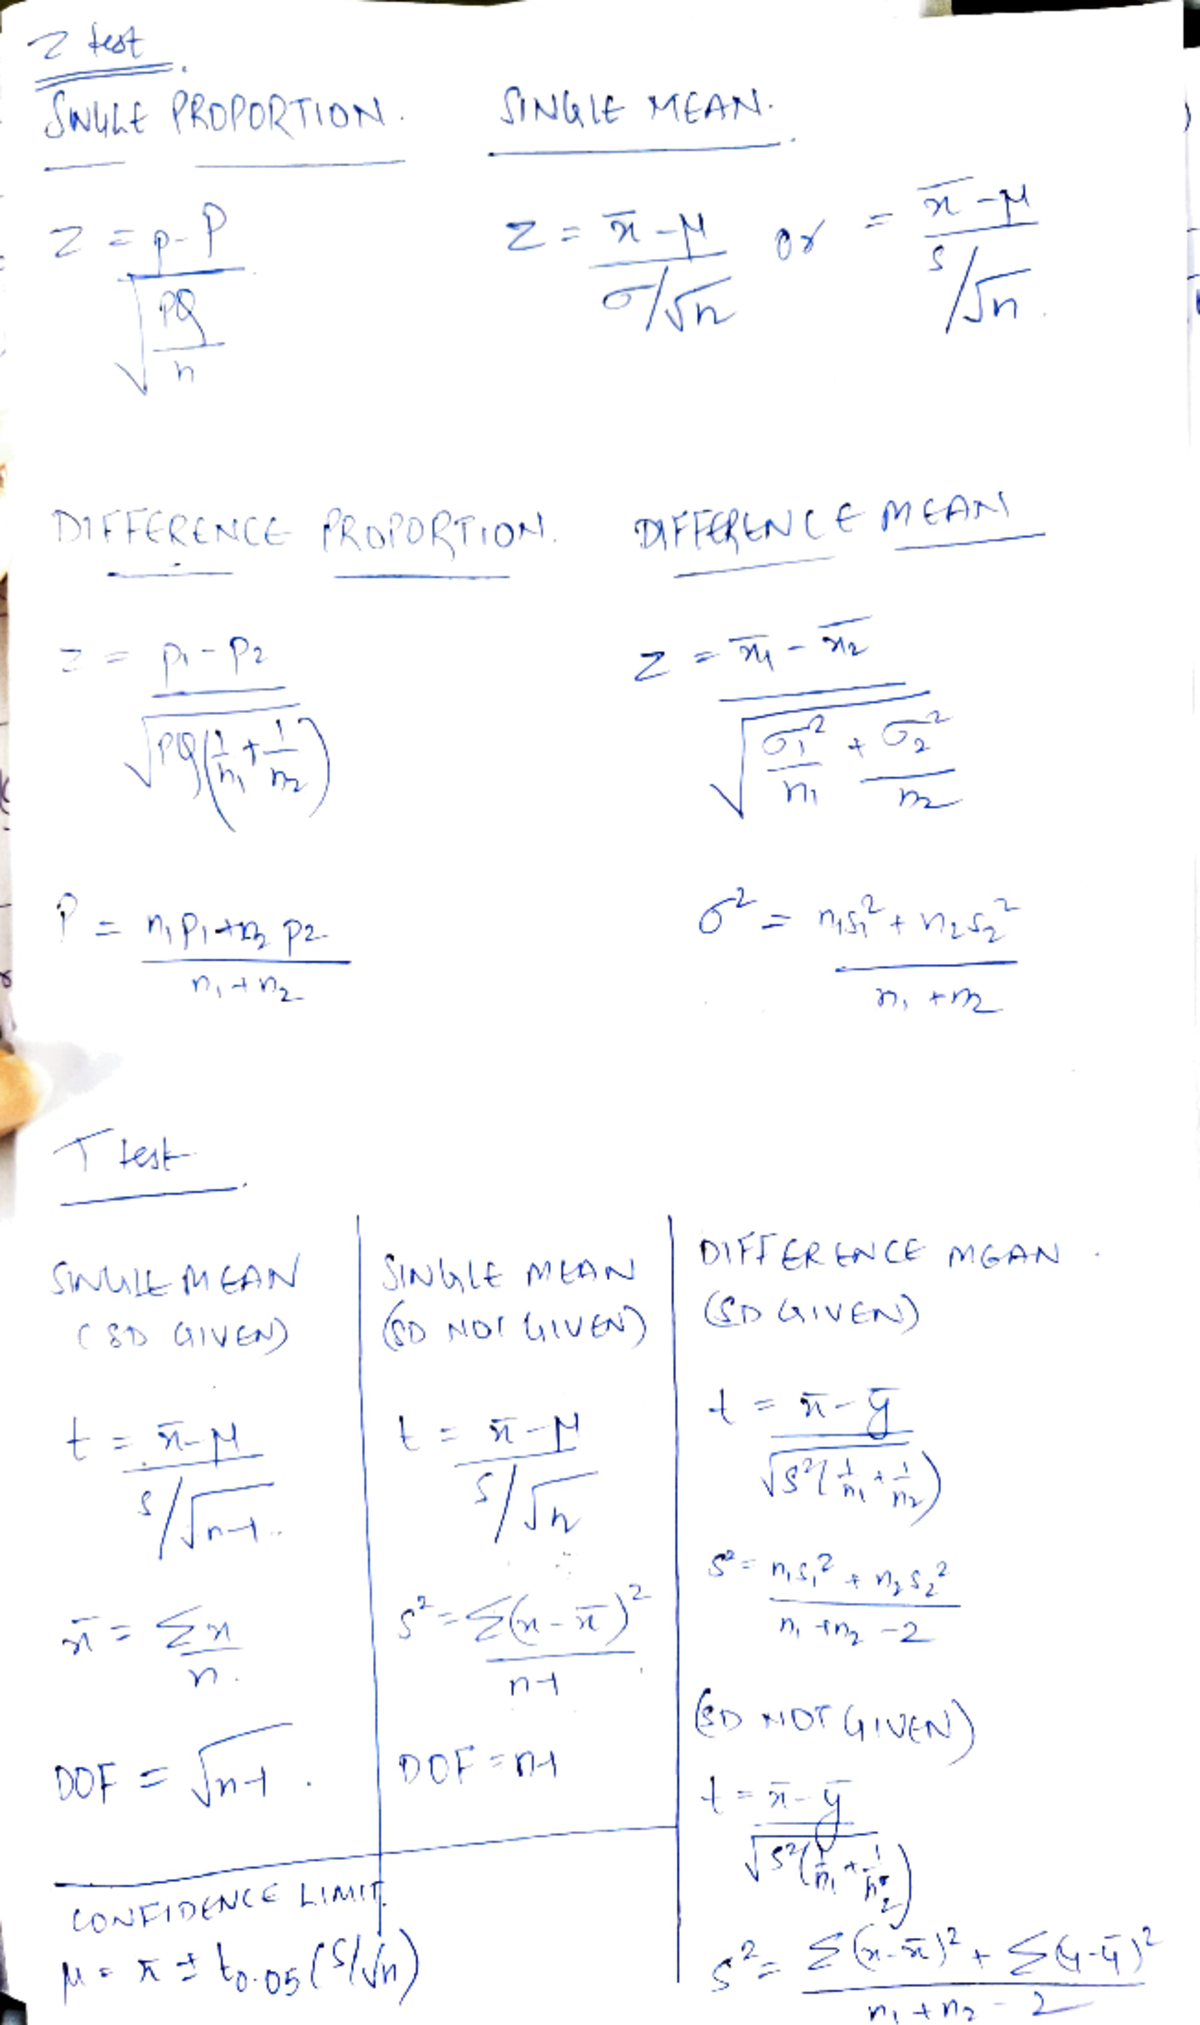 Z test
SINGLE PROPORTION.
Z = p - P / √(PQ/n)
SINGLE MEAN.
Z = x̄ - μ / σ/√n or = x̄ - μ / s/√n
DIFFERENCE PROPORTION.
Z = p1 - p2 / √(PQ(1/n1 + 1/n2))
P = n1p1 + n2p2 / n1 + n2
DIFFERENCE MEAN
Z = x̄1 - x̄2 / √(σ1²/n1 + σ2²/n2)
σ² = n1s1² + n2s2² / n1 + n2
T test
SINGLE MEAN
(SD GIVEN)
t = x̄ - μ / s/√n-1
x̄ = Σx / n.
DOF = √n-1.
SINGLE MEAN
(SD NOT GIVEN)
t = x̄ - μ / s/√n
s² = Σ(x - x̄)² / n-1
DOF = n-1
DIFFERENCE MEAN.
(SD GIVEN)
t = x̄ - ȳ / √(S²(1/n1 + 1/n2))
S² = n1s1² + n2s2² / n1 + n2 - 2
(SD NOT GIVEN)
t = x̄ - ȳ / √(S²(1/n1 + 1/n2))
S² = Σ(x - x̄)² + Σ(y - ȳ)² / n1 + n2 - 2
CONFIDENCE LIMIT.
μ = x̄ ± t0.05 (S/√n)